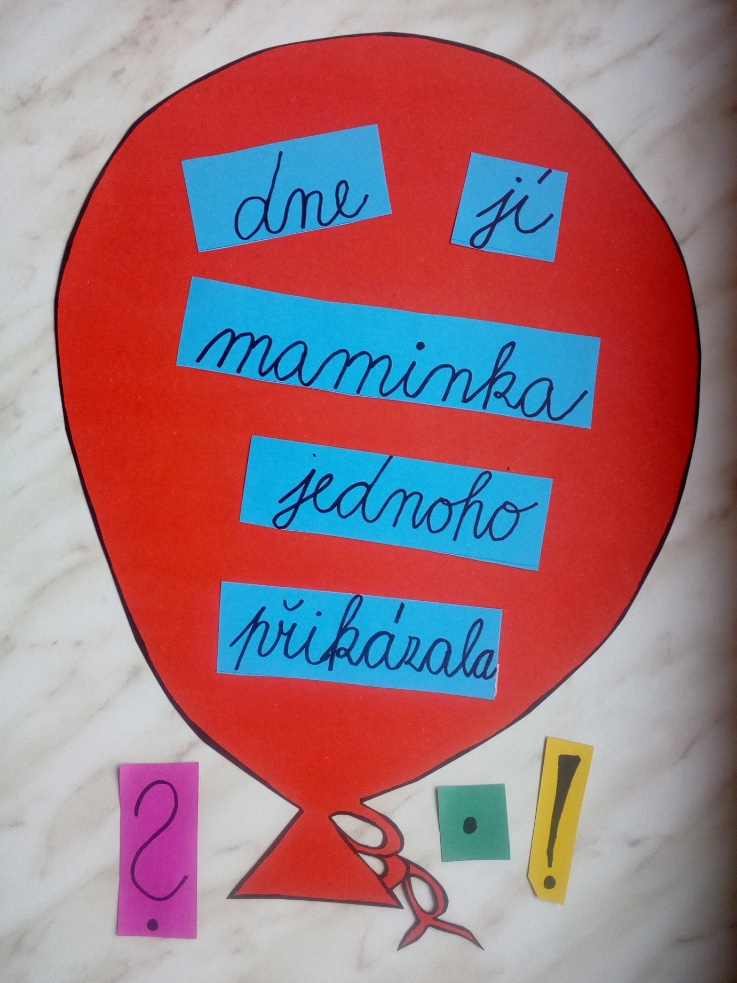 dne jí
maminka
jednoho
přikázala
? . !